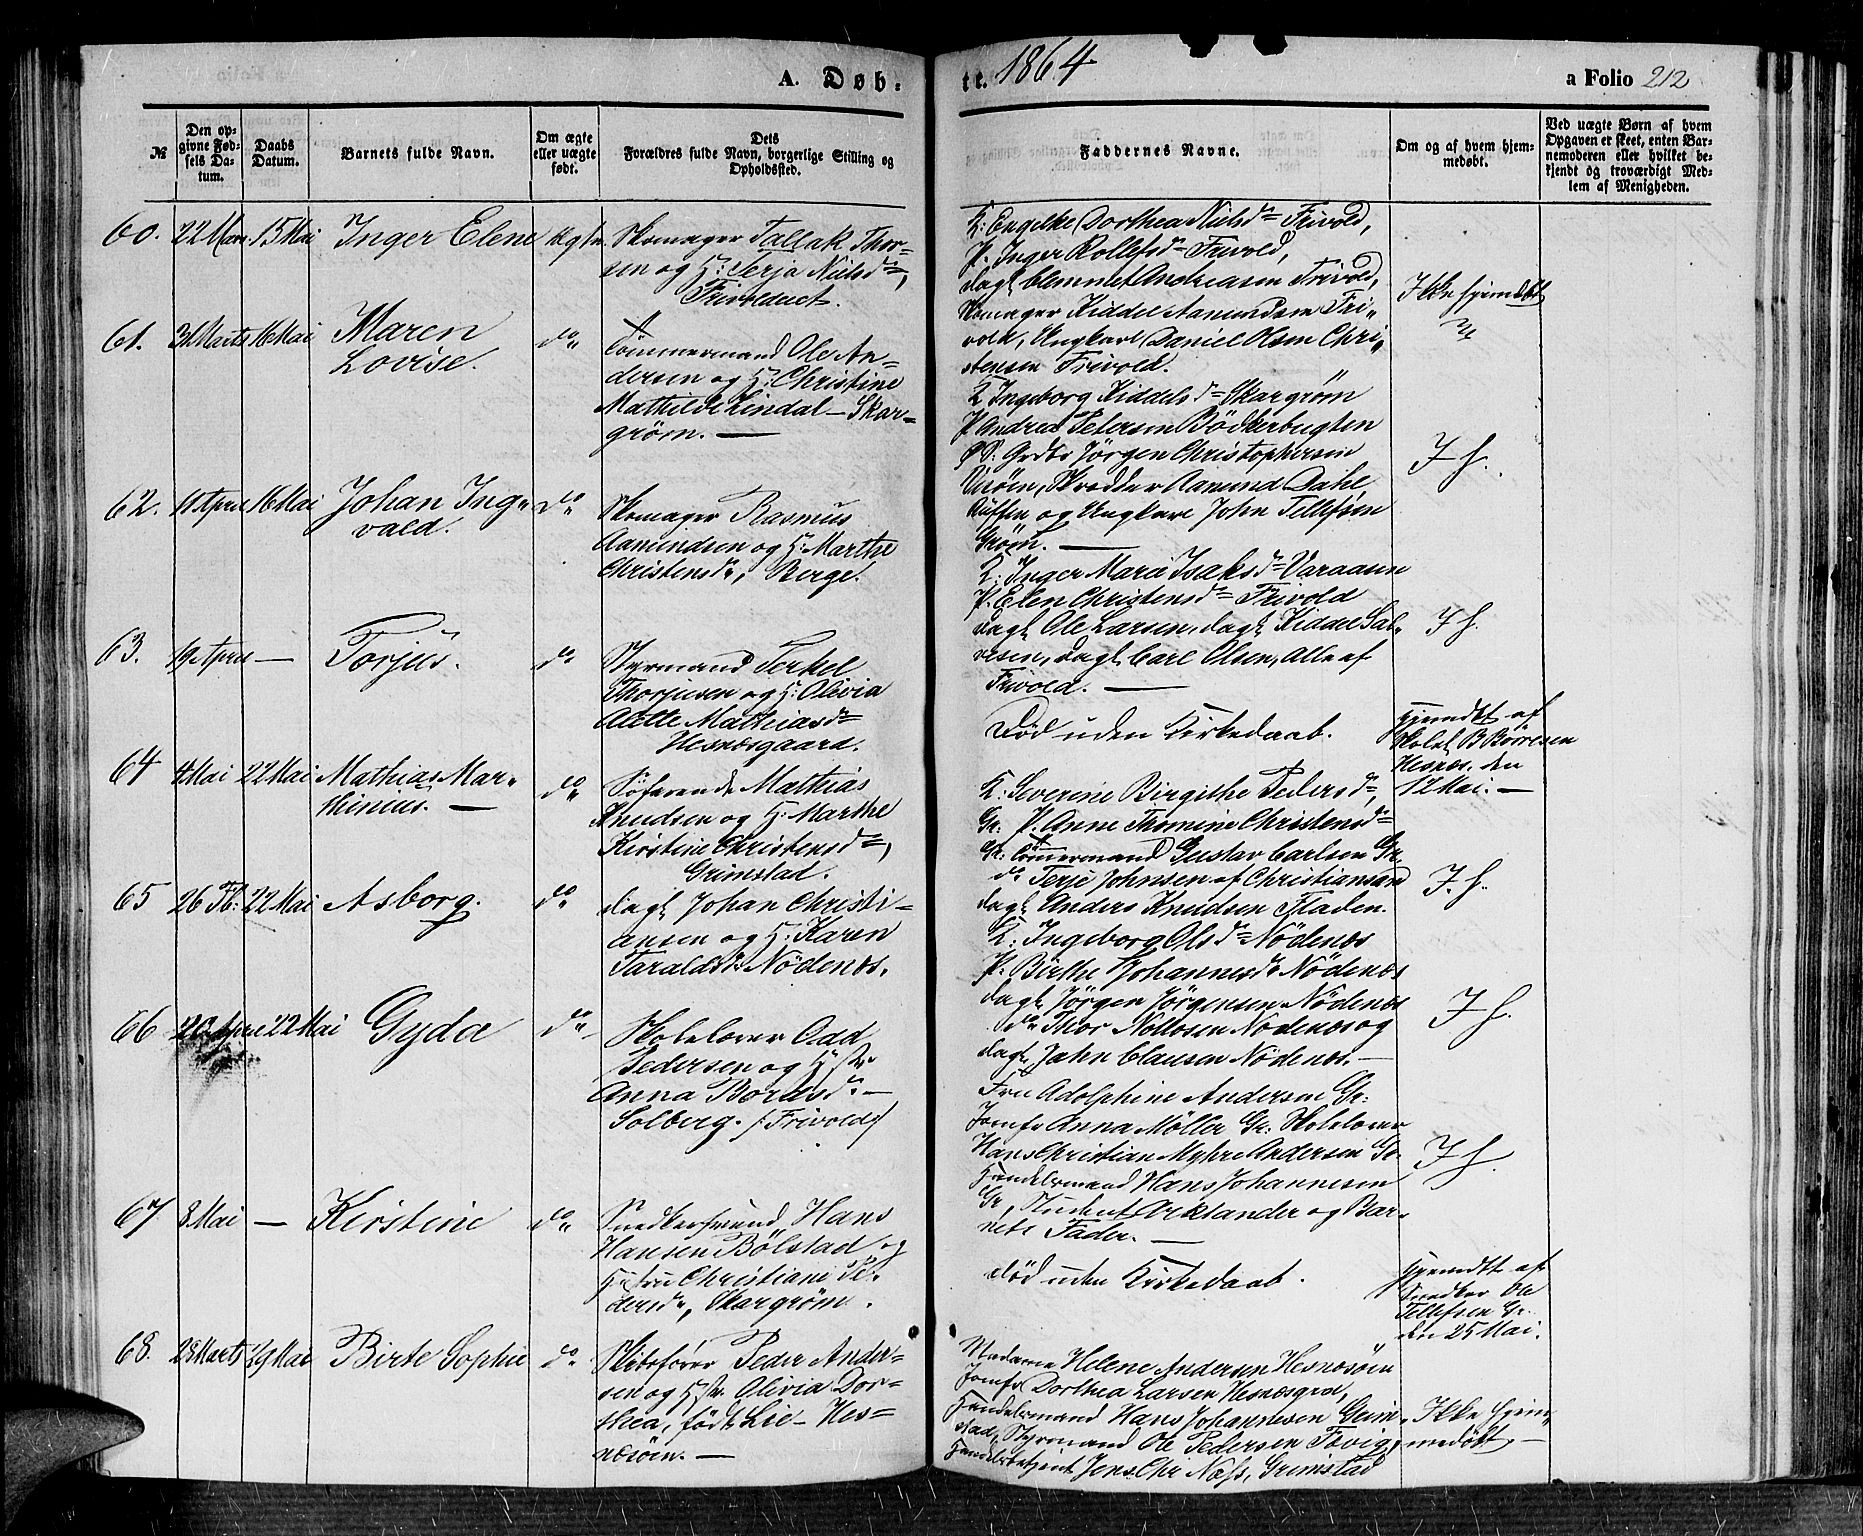 A. Døb-
tt. 1864
a Folio 212
№
Den op-
givne Fød-
sels Da-
tum.
Daabs
Datum.
Barnets fulde Navn.
Om ægte
eller uægte
født.
Dets
Forældres fulde Navn, borgerlige Stilling og
Opholdssted.
Faddernes Navne.
Om og af hvem hjem-
medøbt.
Ved uægte Børn af hvem
Opgaven er skeet, enten Bar-
nemoderen eller hvilket be-
kjendt og troværdigt Med-
lem af Menigheden.
60. 22 Mars 15 Mai Inger Elene Ægte Skomager Tallak Thor-
sen og H: Terja Nielsd,
Frivoldnet.
K: Engelke Dorthea Nielsd Frivold,
P. Inger Rollefsd Frivold,
dagl Clemmet Andreasen Frivold,
Skomager Kiddel Aanundsen Fri-
vold, Ungkarl Daniel Olsen Chri-
stensen Frivold.
Ikke hjemdøbt
61. 31 Marts 16 Mai Maren
Lovise.
do
Tömmermand Ole An-
dersen og H: Christine
Mathilde Lindal - Skar-
grøm.
K Ingeborg Kiddelsd Skargrøm
P Andrea Petersen Bödkerbugten
Jörgen Christophersen
Skrædder Aanund Dahl
og Ungkarl John Tellefsen
Grøm.
I h.
62. 11 April 16 Mai Johan Ing-
vald.
do
Skomager Rasmus
Aanundsen og H: Marthe
Christensd, Berge.
K: Inger Maria Isaksd Varaasen
P. Elen Christensd Frivold
dagl Ole Larsen, dagl Kiddel Sal-
vesen, dagl Carl Olsen, Alle af
Frivold.
I h.
63. 19 April — Torjus. do Styrmand Terkel
Thorjusen og H: Olivia
Alette Mathiasd
Hesnæsgaard.
Död uden Kirkedaab.
Hjemdøbt af
Skolel B Börresen
Hesnæs den
12 Mai.
64 4 Mai 22 Mai Mathias Mar-
thinius.
do
Söfarende Mathias
Knudsen og H: Marthe
Kirstine Christensd,
Grimstad.
K: Severine Birgithe Pedersd,
Gr: P. Anne Thomine Christensd
Gr: Tömmermand Gustav Carlsen Gr.
do Terje Johnsen af Christiansand
dagl Anders Knudsen Fladen.
I. h.
65 26 Fb: 22 Mai Asborg. do dagl Johan Christi-
ansen og H: Karen
Taraldsd Nödenæs.
K: Ingeborg Olsd Nödenæs
P. Birthe Johannesd Nödenæs
dagl Jörgen Jörgensen Nödenæs
do Thor Nödenæs og
dagl John Clausen Nödenæs.
I h.
66 20 April 22 Mai Gyda do Skolelærer Odd
Pedersen og Hstr
Anna Bordsd
Solberg. /: Frivold :/
Fru Adolphine Andersen Gr:
Jomfr Anna Möller Gr: Skolelærer
Hans Christian Myhre Andersen Gr
Handelsmand Hans Johannesen
Gr, Student Arctander og Bar-
nets Fader.
I h.
67 8 Mai — Kirstine do Snedkersvend Hans
Hansen Bölstad og
Hstru Christiane Pe-
dersd, Skargrøm.
död uden Kirkedaab.
Hjemdt af
Snedker Ole
Tellefsen Gr.
den 25 Mai.
68. 28 Marts 29 Mai Birte Sophie do Skibsfører Peder Ander-
sen og Hstr. Olivia Dor-
thea, födt Lie - Hes-
næsöen.
Madame Helene Andersen Hesnæsöen
Jomfr Dorthea Larsen Hesnæsgrd,
Handelsmand Hans Johannesen Grim-
stad, Styrmand Ole Pedersen Fevig,
Handelsbetjent Jens Chr Næss, Grimstad
Ikke hjem-
medøbt.